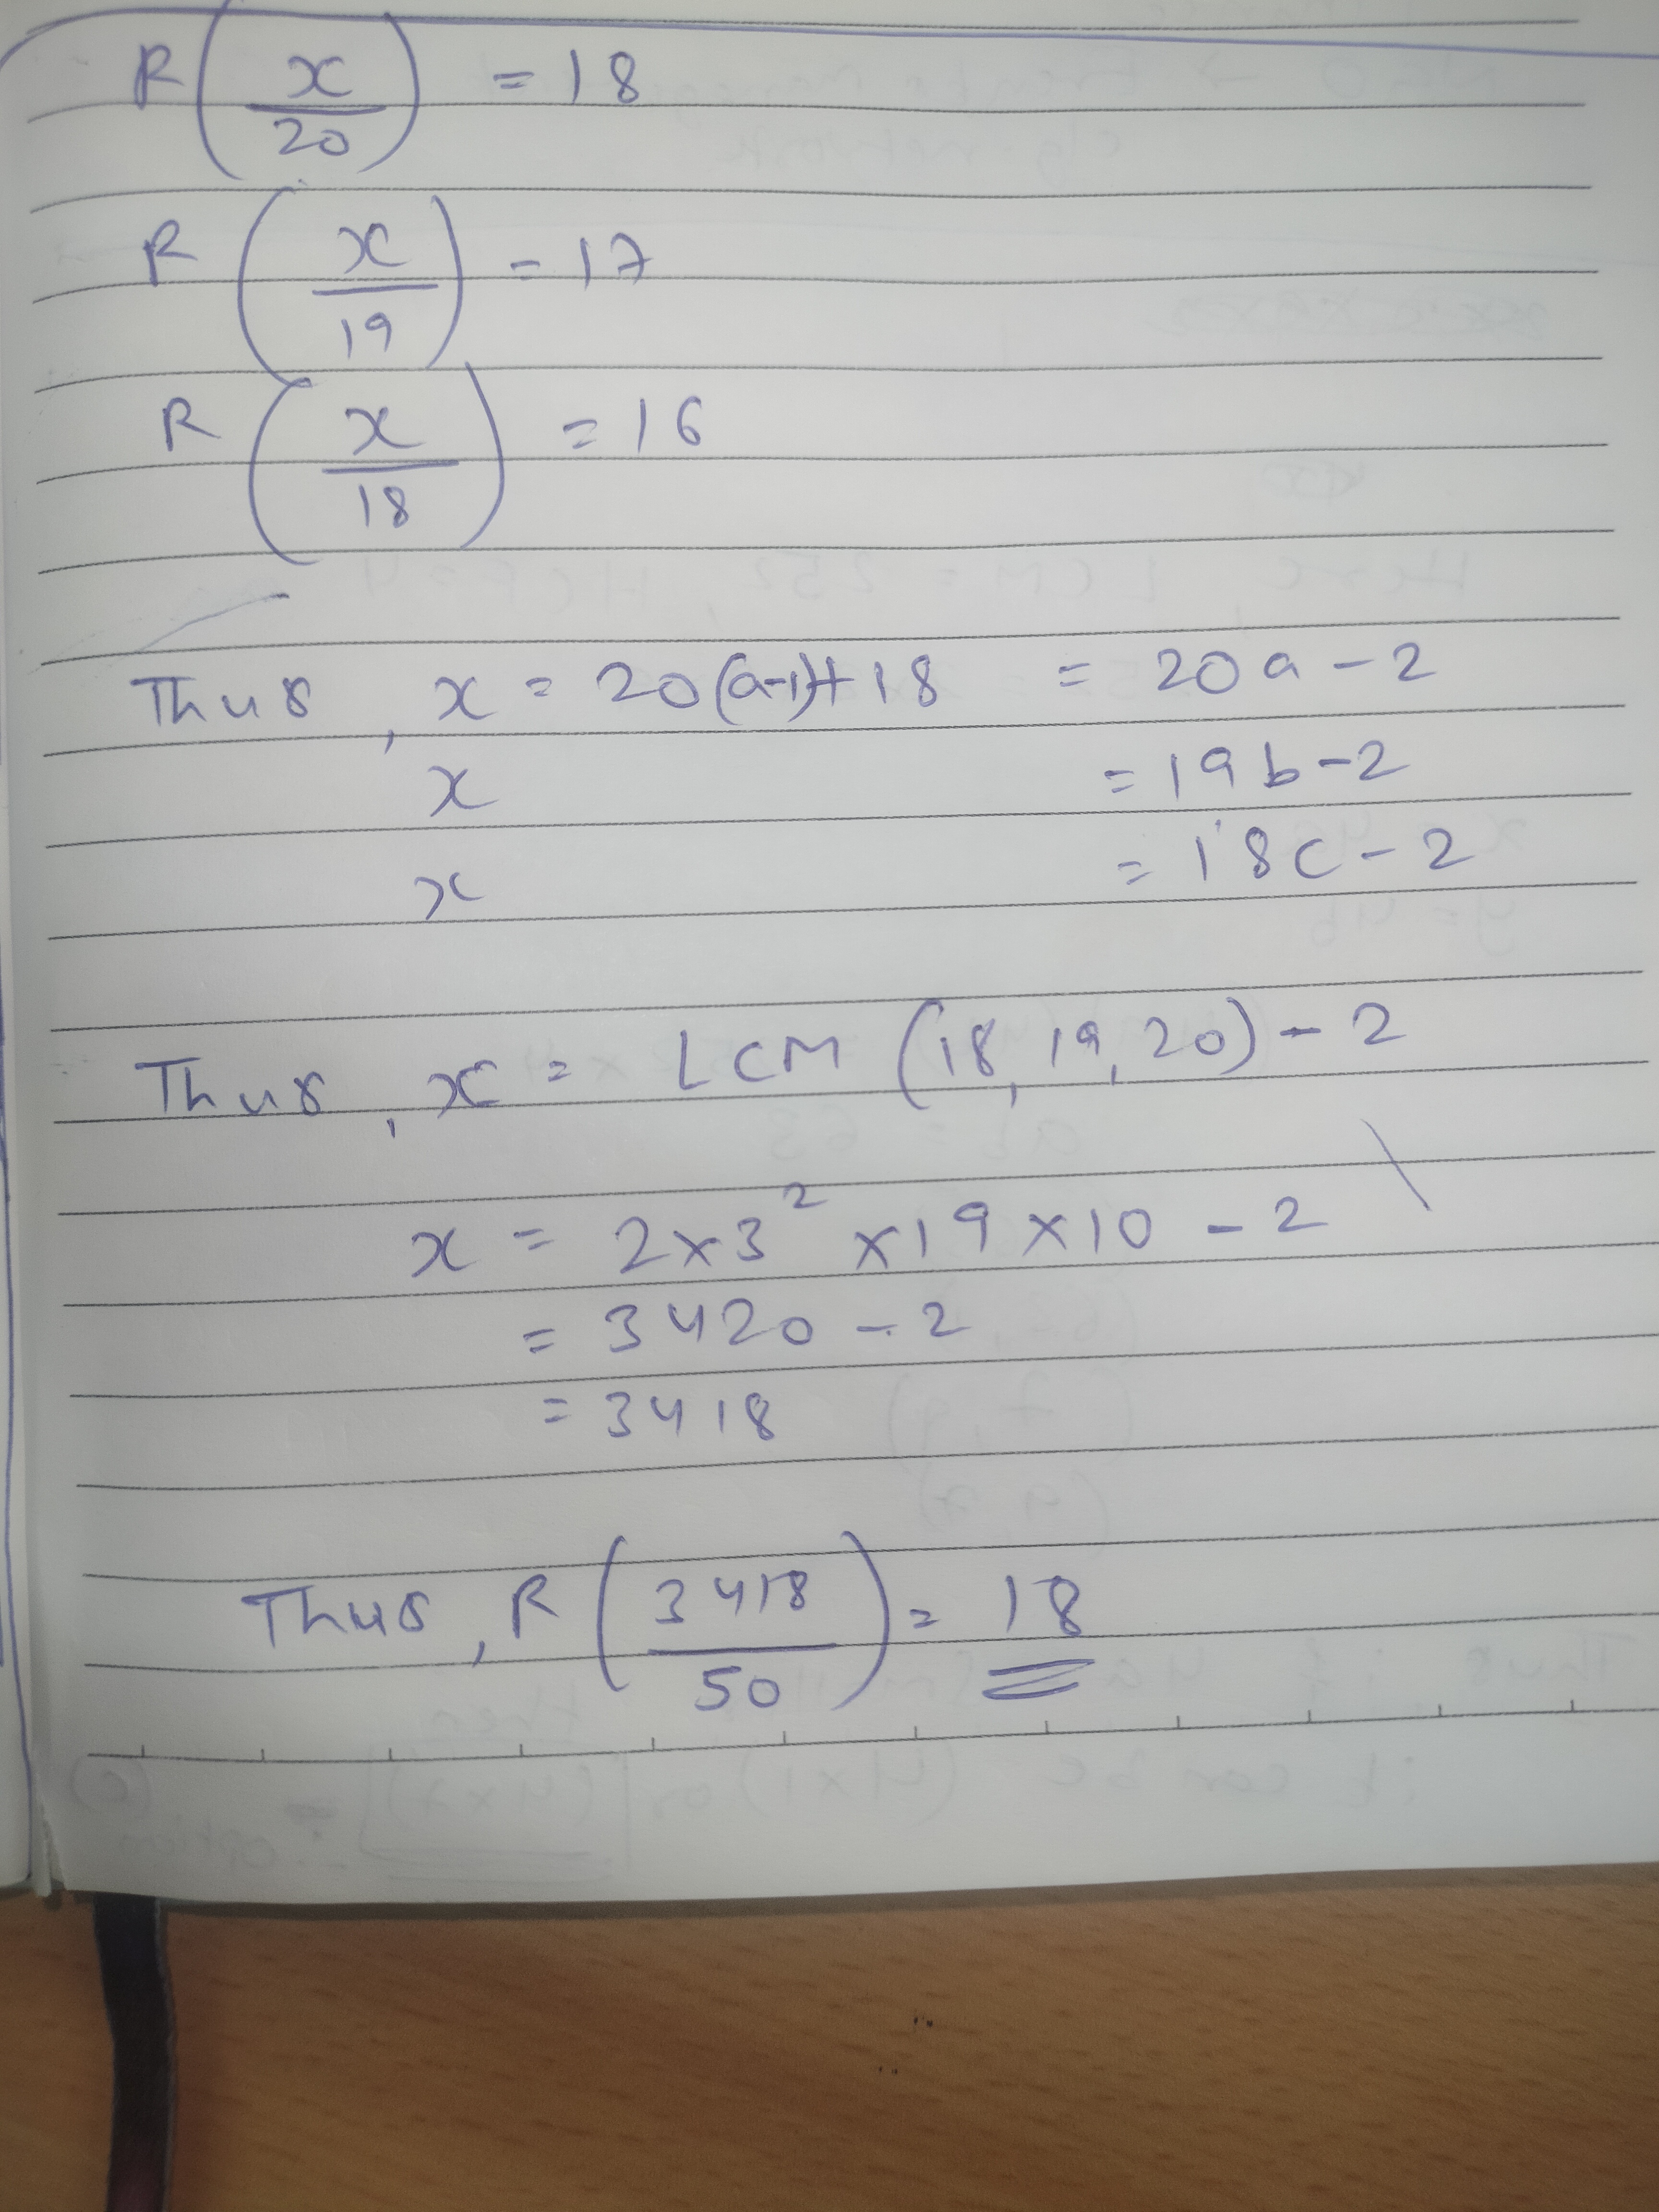 R(x/20) = 18
R(x/19) = 17
R(x/18) = 16
Thus, x = 20(a-1)+18 = 20a - 2
x = 19b - 2
x = 18c - 2
Thus, x = LCM (18, 19, 20) - 2
x = 2 × 3² × 19 × 10 - 2
= 3420 - 2
= 3418
Thus, R(3418/50) = 18